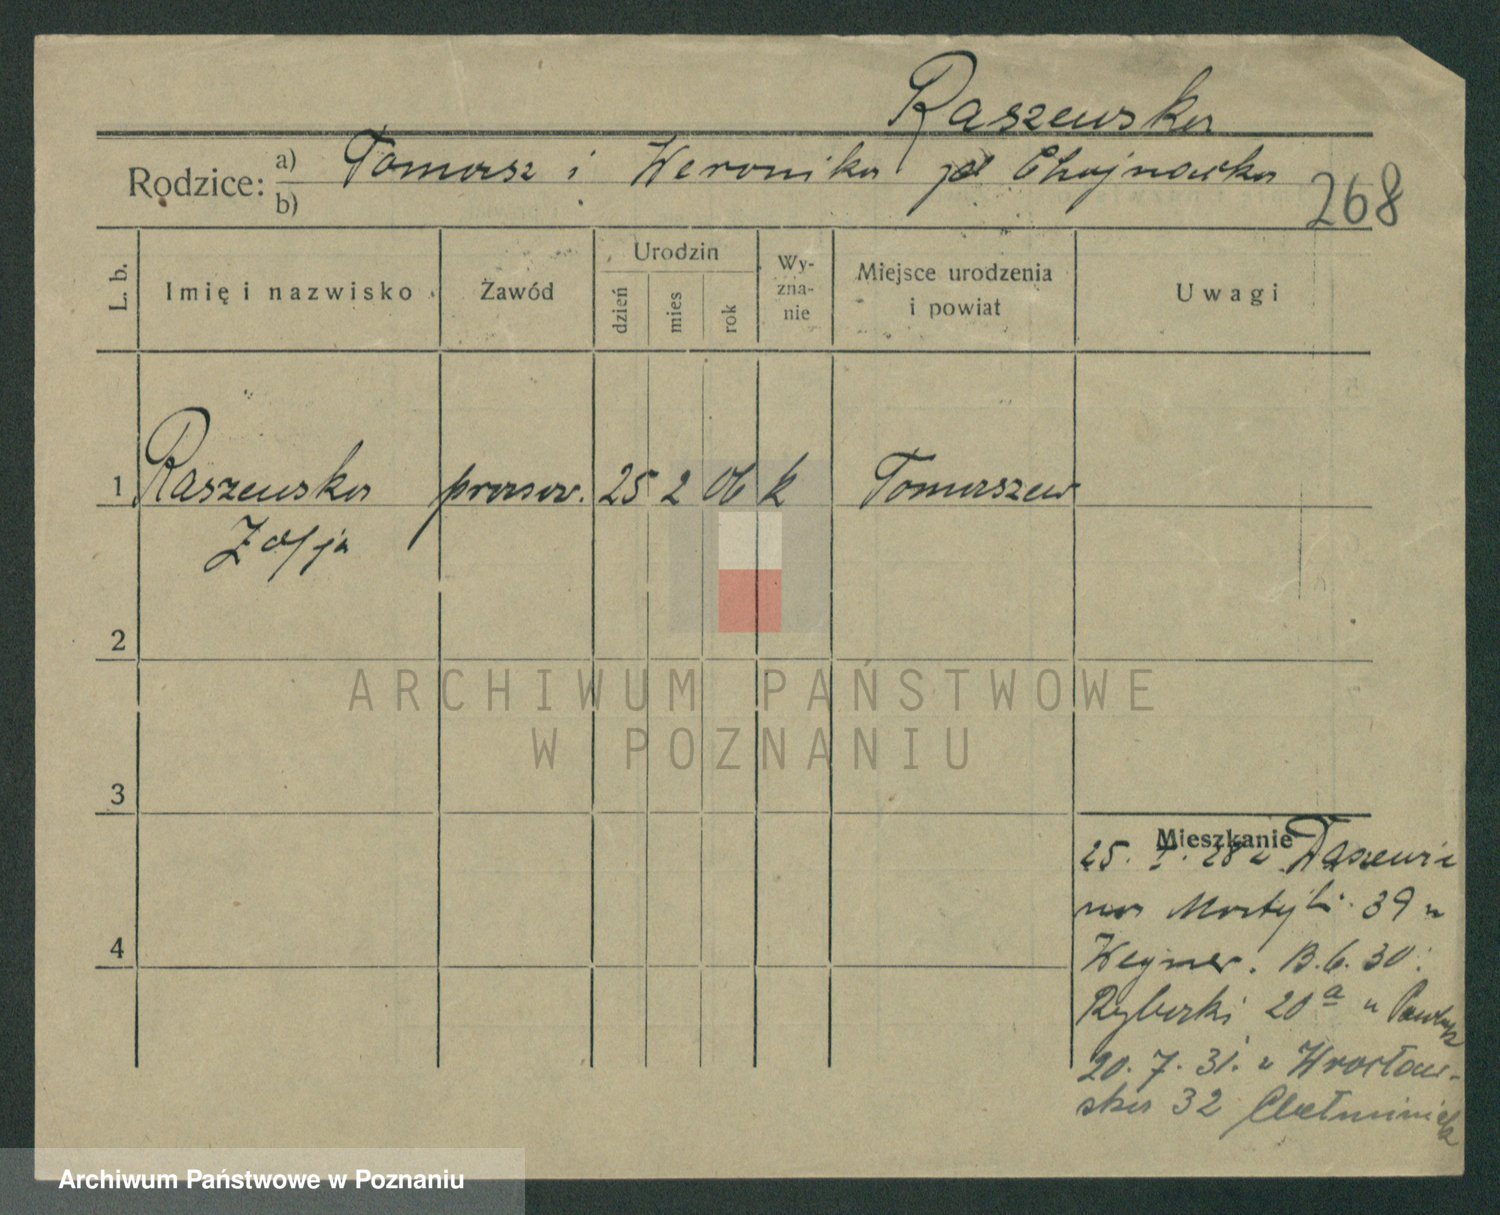 Raszewska
Rodzice: a) Tomasz i Weronika zd Chojnacka
b)
268
L. b.
Imię i nazwisko
Zawód
Urodzin
dzień
mies
rok
Wy-
zna-
nie
Miejsce urodzenia
i powiat
Uwagi
1 Raszewska prasow. 25 2 06 k Tomaszew
Zofja
2
3
4
Mieszkanie
25. 28 u
39 u
Weyner. 13.6.30.
Rybaki 20a u
20. 7. 31. u Wrocław-
ska 32
ARCHIWUM PAŃSTWOWE
W POZNANIU
Archiwum Państwowe w Poznaniu